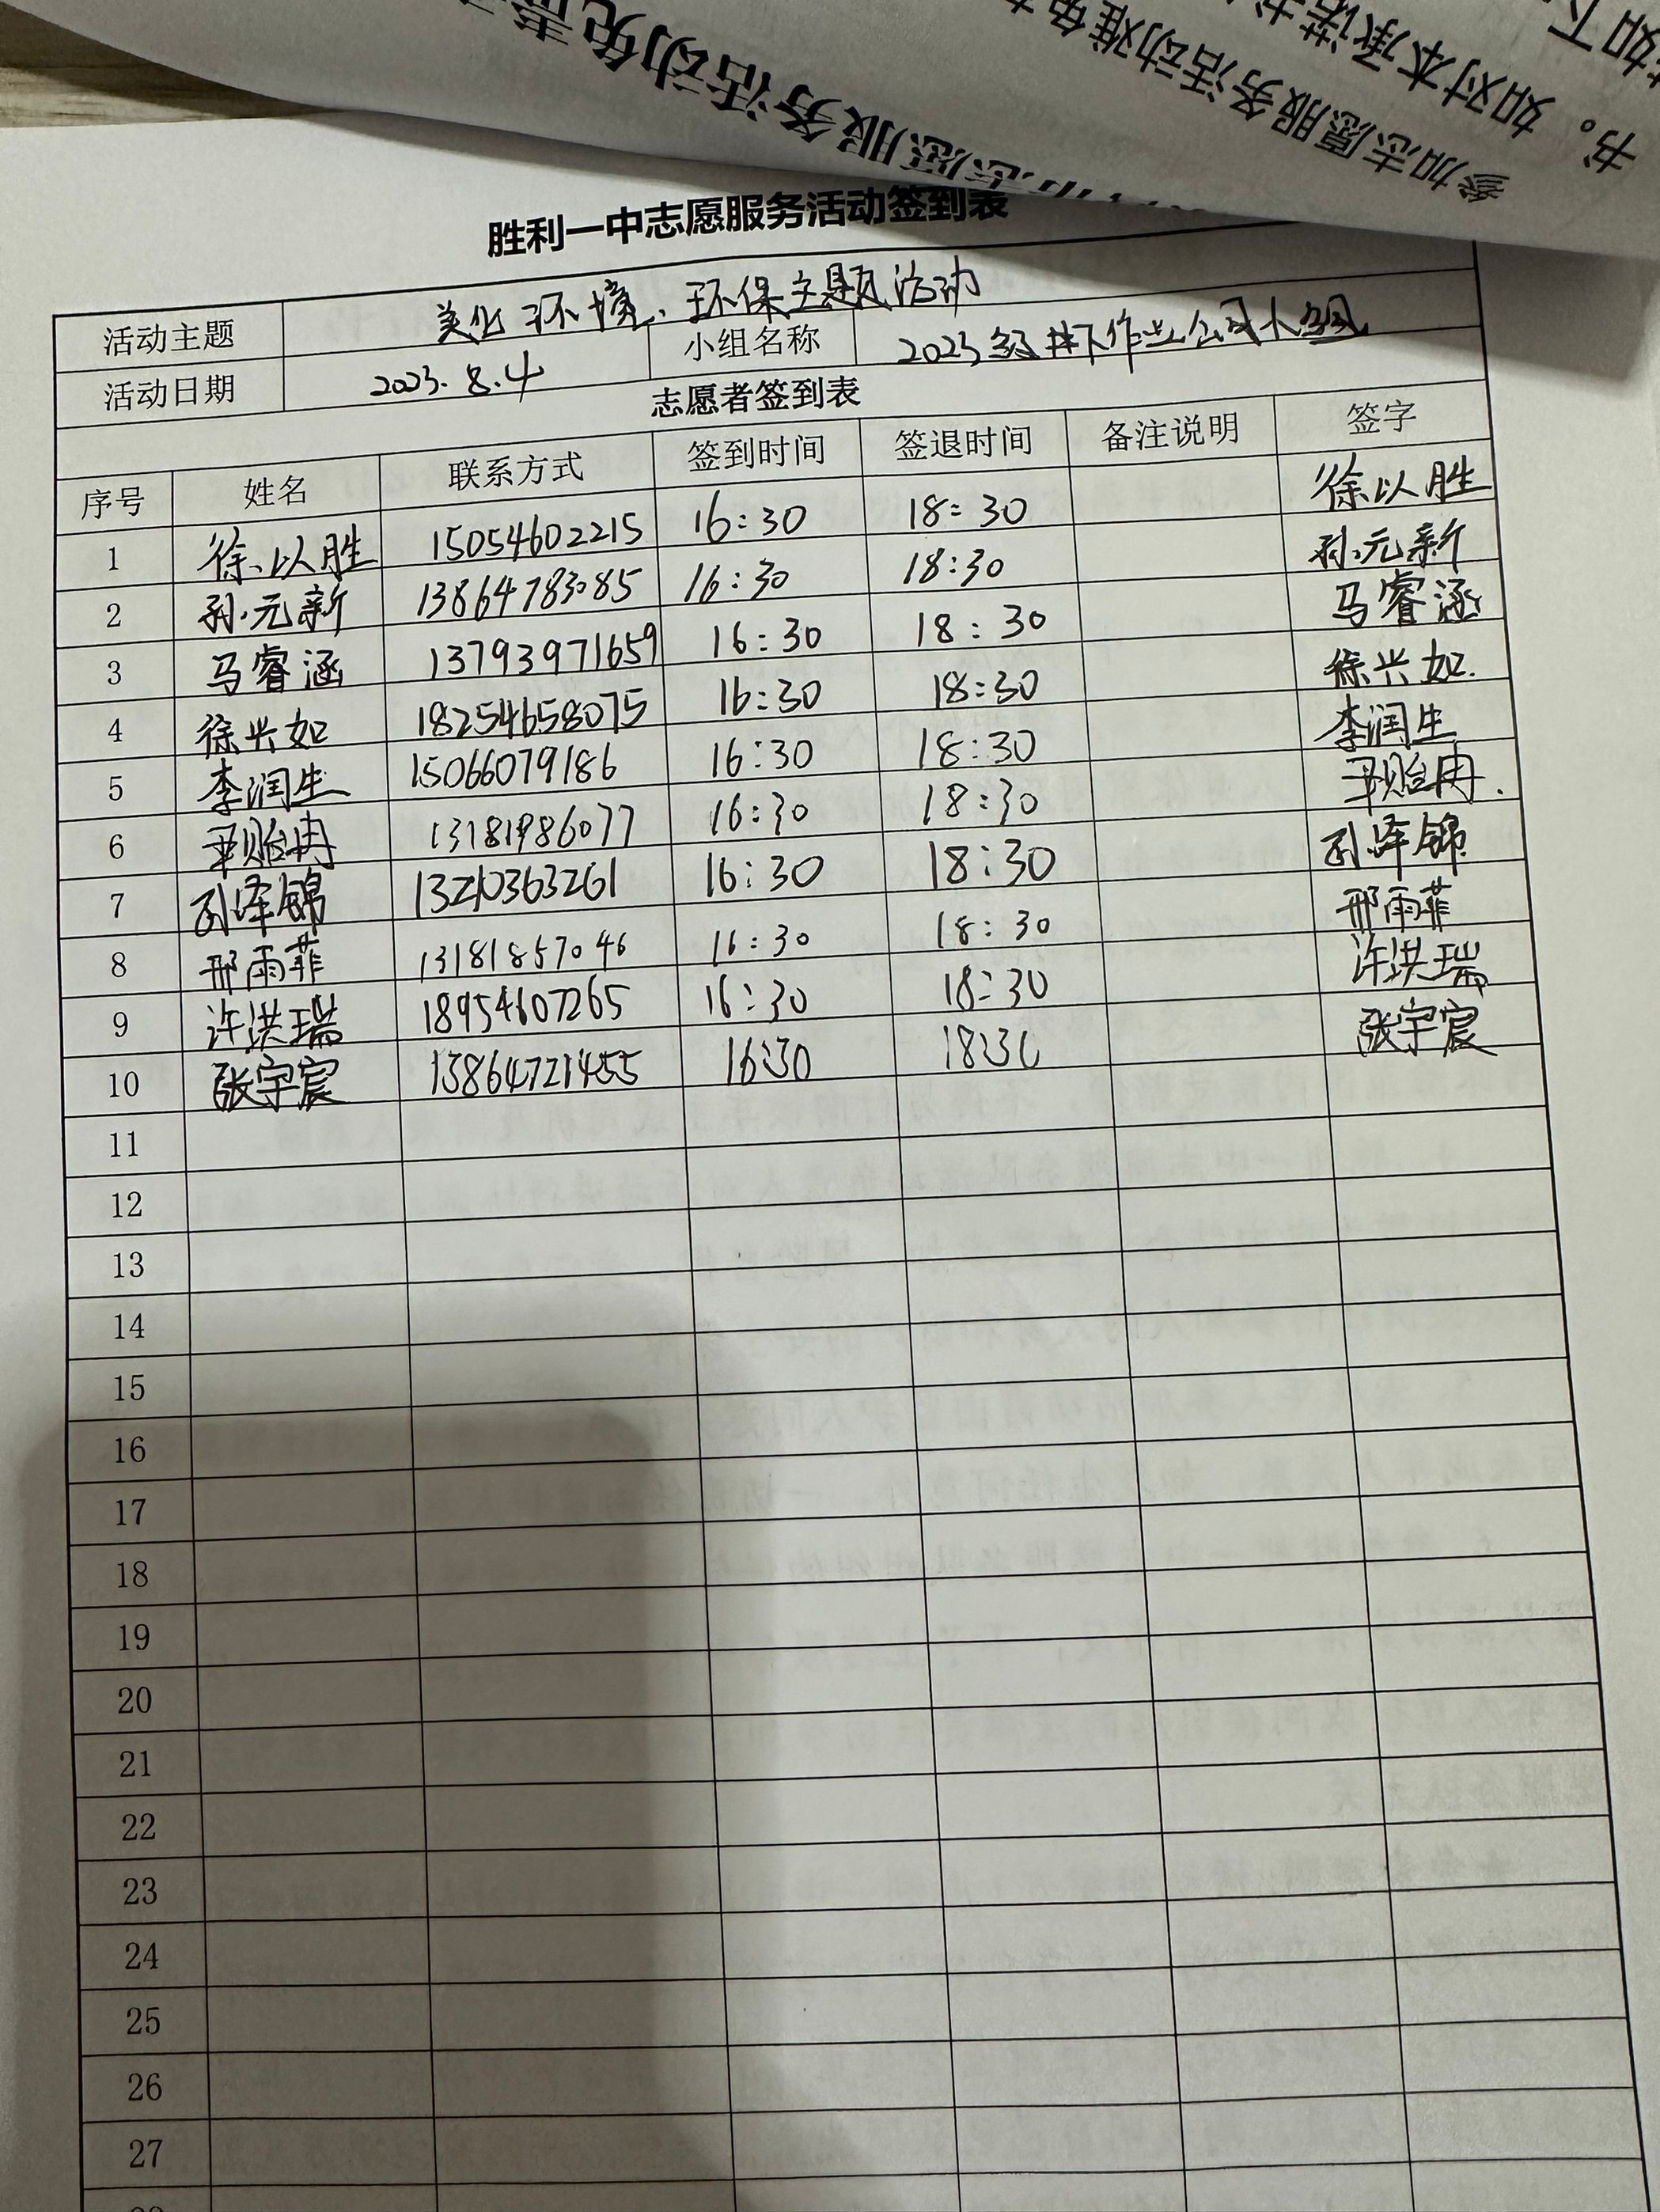 志愿服务活动免责
参加志愿服务活动难免
书。如对本承诺书
如下
胜利一中志愿服务活动签到表
活动主题 美化环境、环保主题活动
活动日期 2023.8.4 小组名称 2023级井下作业公司小组
志愿者签到表
序号 姓名 联系方式 签到时间 签退时间 备注说明 签字
1 徐以胜 15054602215 16:30 18:30 徐以胜
2 孙元新 13864783085 16:30 18:30 孙元新
3 马睿涵 13793971659 16:30 18:30 马睿涵
4 徐兴如 18254658075 16:30 18:30 徐兴如.
5 李润生 15066079186 16:30 18:30 李润生
6 冉 13181986077 16:30 18:30 冉.
7 孙泽锦 13210363261 16:30 18:30 孙泽锦
8 邢雨菲 13181857046 16:30 18:30 邢雨菲
9 许洪瑞 18954607265 16:30 18:30 许洪瑞
10 张宇宸 13864721455 16:30 18:30 张宇宸
11
12
13
14
15
16
17
18
19
20
21
22
23
24
25
26
27